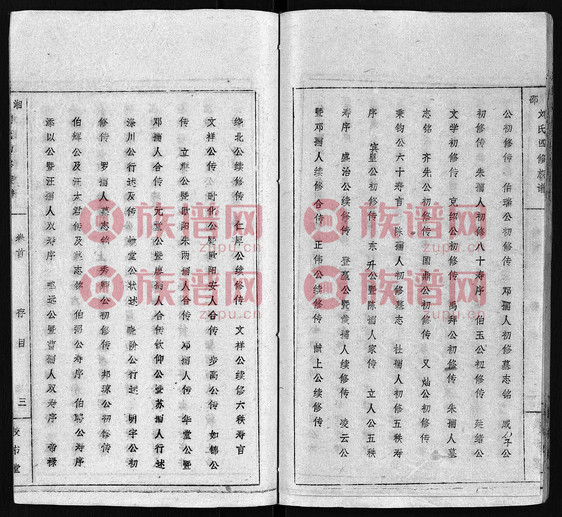 邵 刘氏四修族谱
公初修传 伯瑞公初修传 邓孺人初修墓志铭 咸
初修传 朱孺人初修八十寿序 伯玉公初修传 廷绪公
文学初修传 克绍公初修传 禹拜公初修传 朱孺人墓
志铭 齐先公初修传 国鼎公初修传 又灿公初修传
秉钧公六十寿言 陈孺人初修墓志 杜孺人初修寿
序 宾皇公初修传 东升公暨陈孺人家传 立人公五秩
寿序 盛治公续修传 登嵩公暨 孺人续修传 凌云公
暨邓孺人续修合传 正伟公续修传 献上公续修传
绕北公续修传 仁 公续修传 文祥公续修六秩寿言
文祥公传 时化公暨欧阳安人合传 步高公传 如锦公
传 立 公暨欧阳朱两孺人合传 邓孺人传 华堂公暨
邓孺人合传 元堂公暨 孺人合传 钦仰公暨苏孺人行述
涤川公行述及传 物堂公状述 晓阶公行述 明宇公初
修传 罗孺人墓志铭 秀 公初修传 邦琼公初修传
伯辉公及汪太君传及墓志铭 伯 公寿序 伯 公寿序
添以公暨汪孺人双寿序 公暨曹孺人双寿序 帝禄
湘
卷首 存目 三
敦市堂
族谱网
zupu.cn
族谱网
zupu.cn
族谱网
zupu.cn
族谱网
zupu.cn